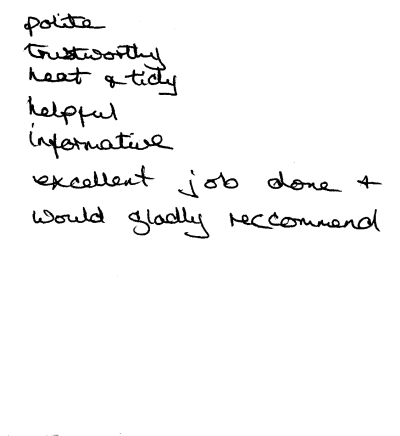 polite
trustworthy
neat & tidy
helpful
informative
excellent job done +
would gladly reccommend